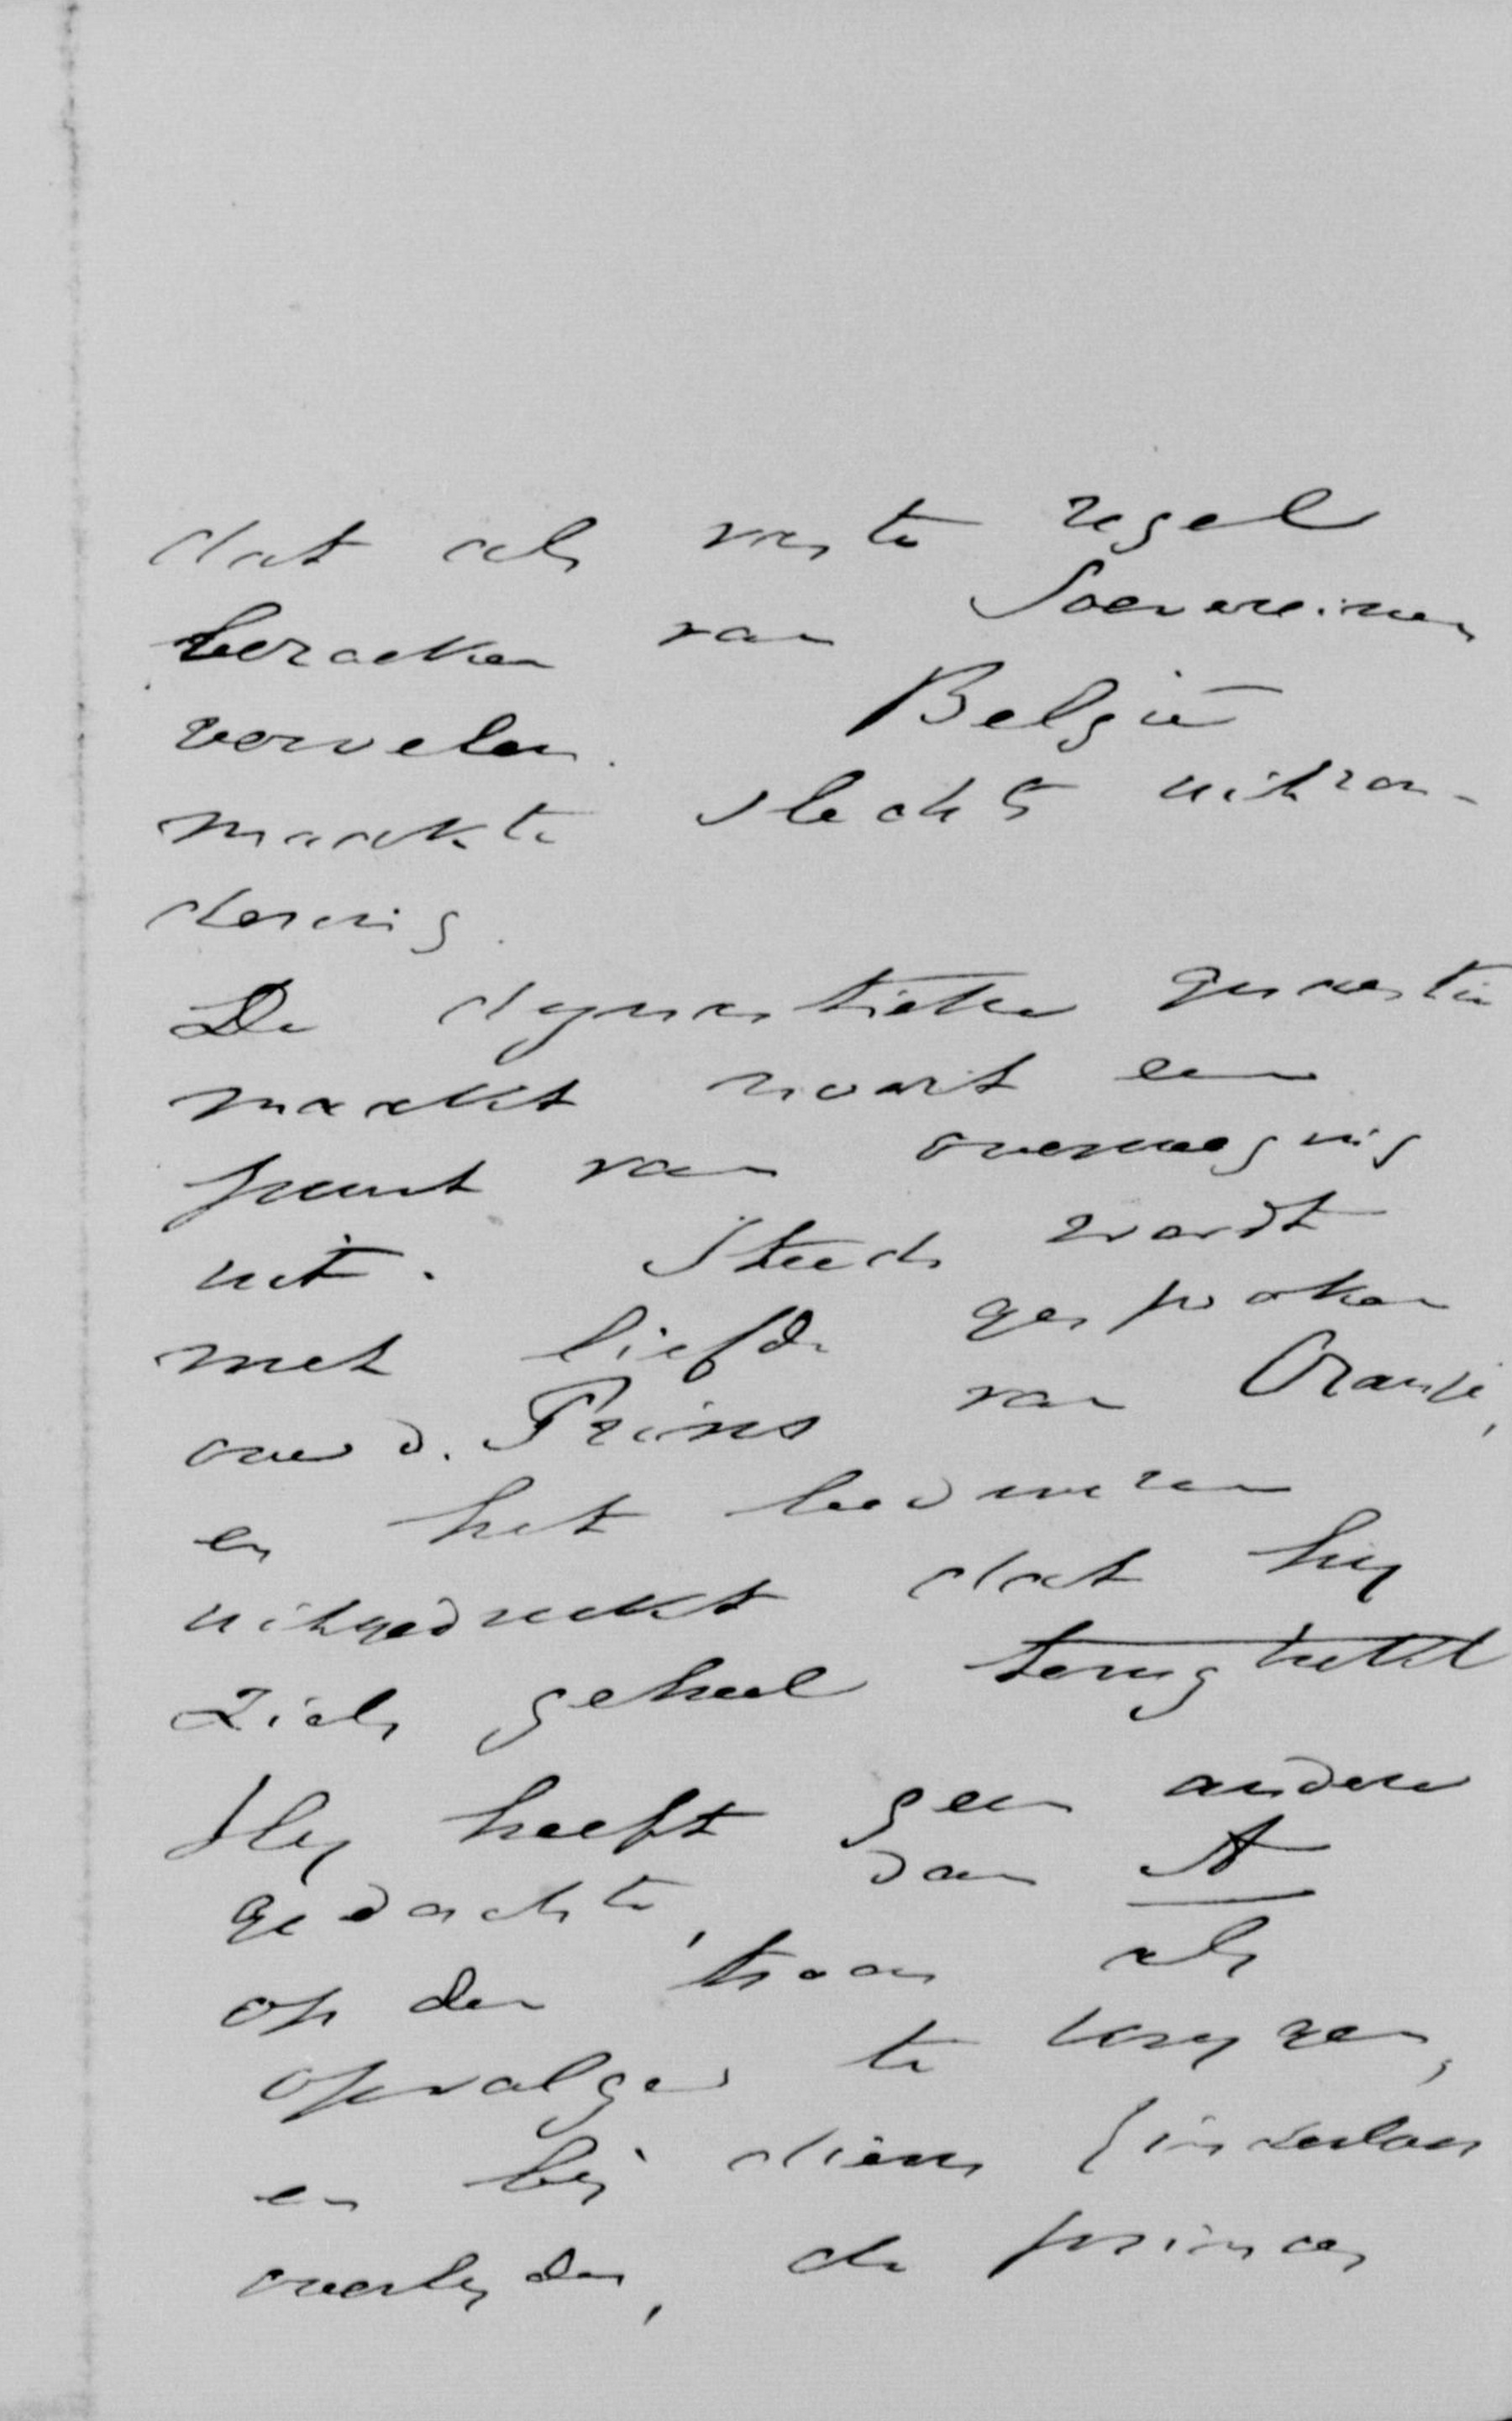 dat als vaste regel
bezoeken van Soevereinen
vervelen. België
maakte slechts uitzon-
dering.
De dynastieke quaestie
maakt nooit een
punt van overweging
uit. Steeds wordt
met liefde gesproken
over d. Prins van Oranje,
en het leedwezen
uitgedrukt dat hij
zich geheel terugtrekt
Hij heeft geen andere
gedachte, dan A
op den troon als
opvolger te krijgen,
en bij diens kinderloos
overlijden, de prinses